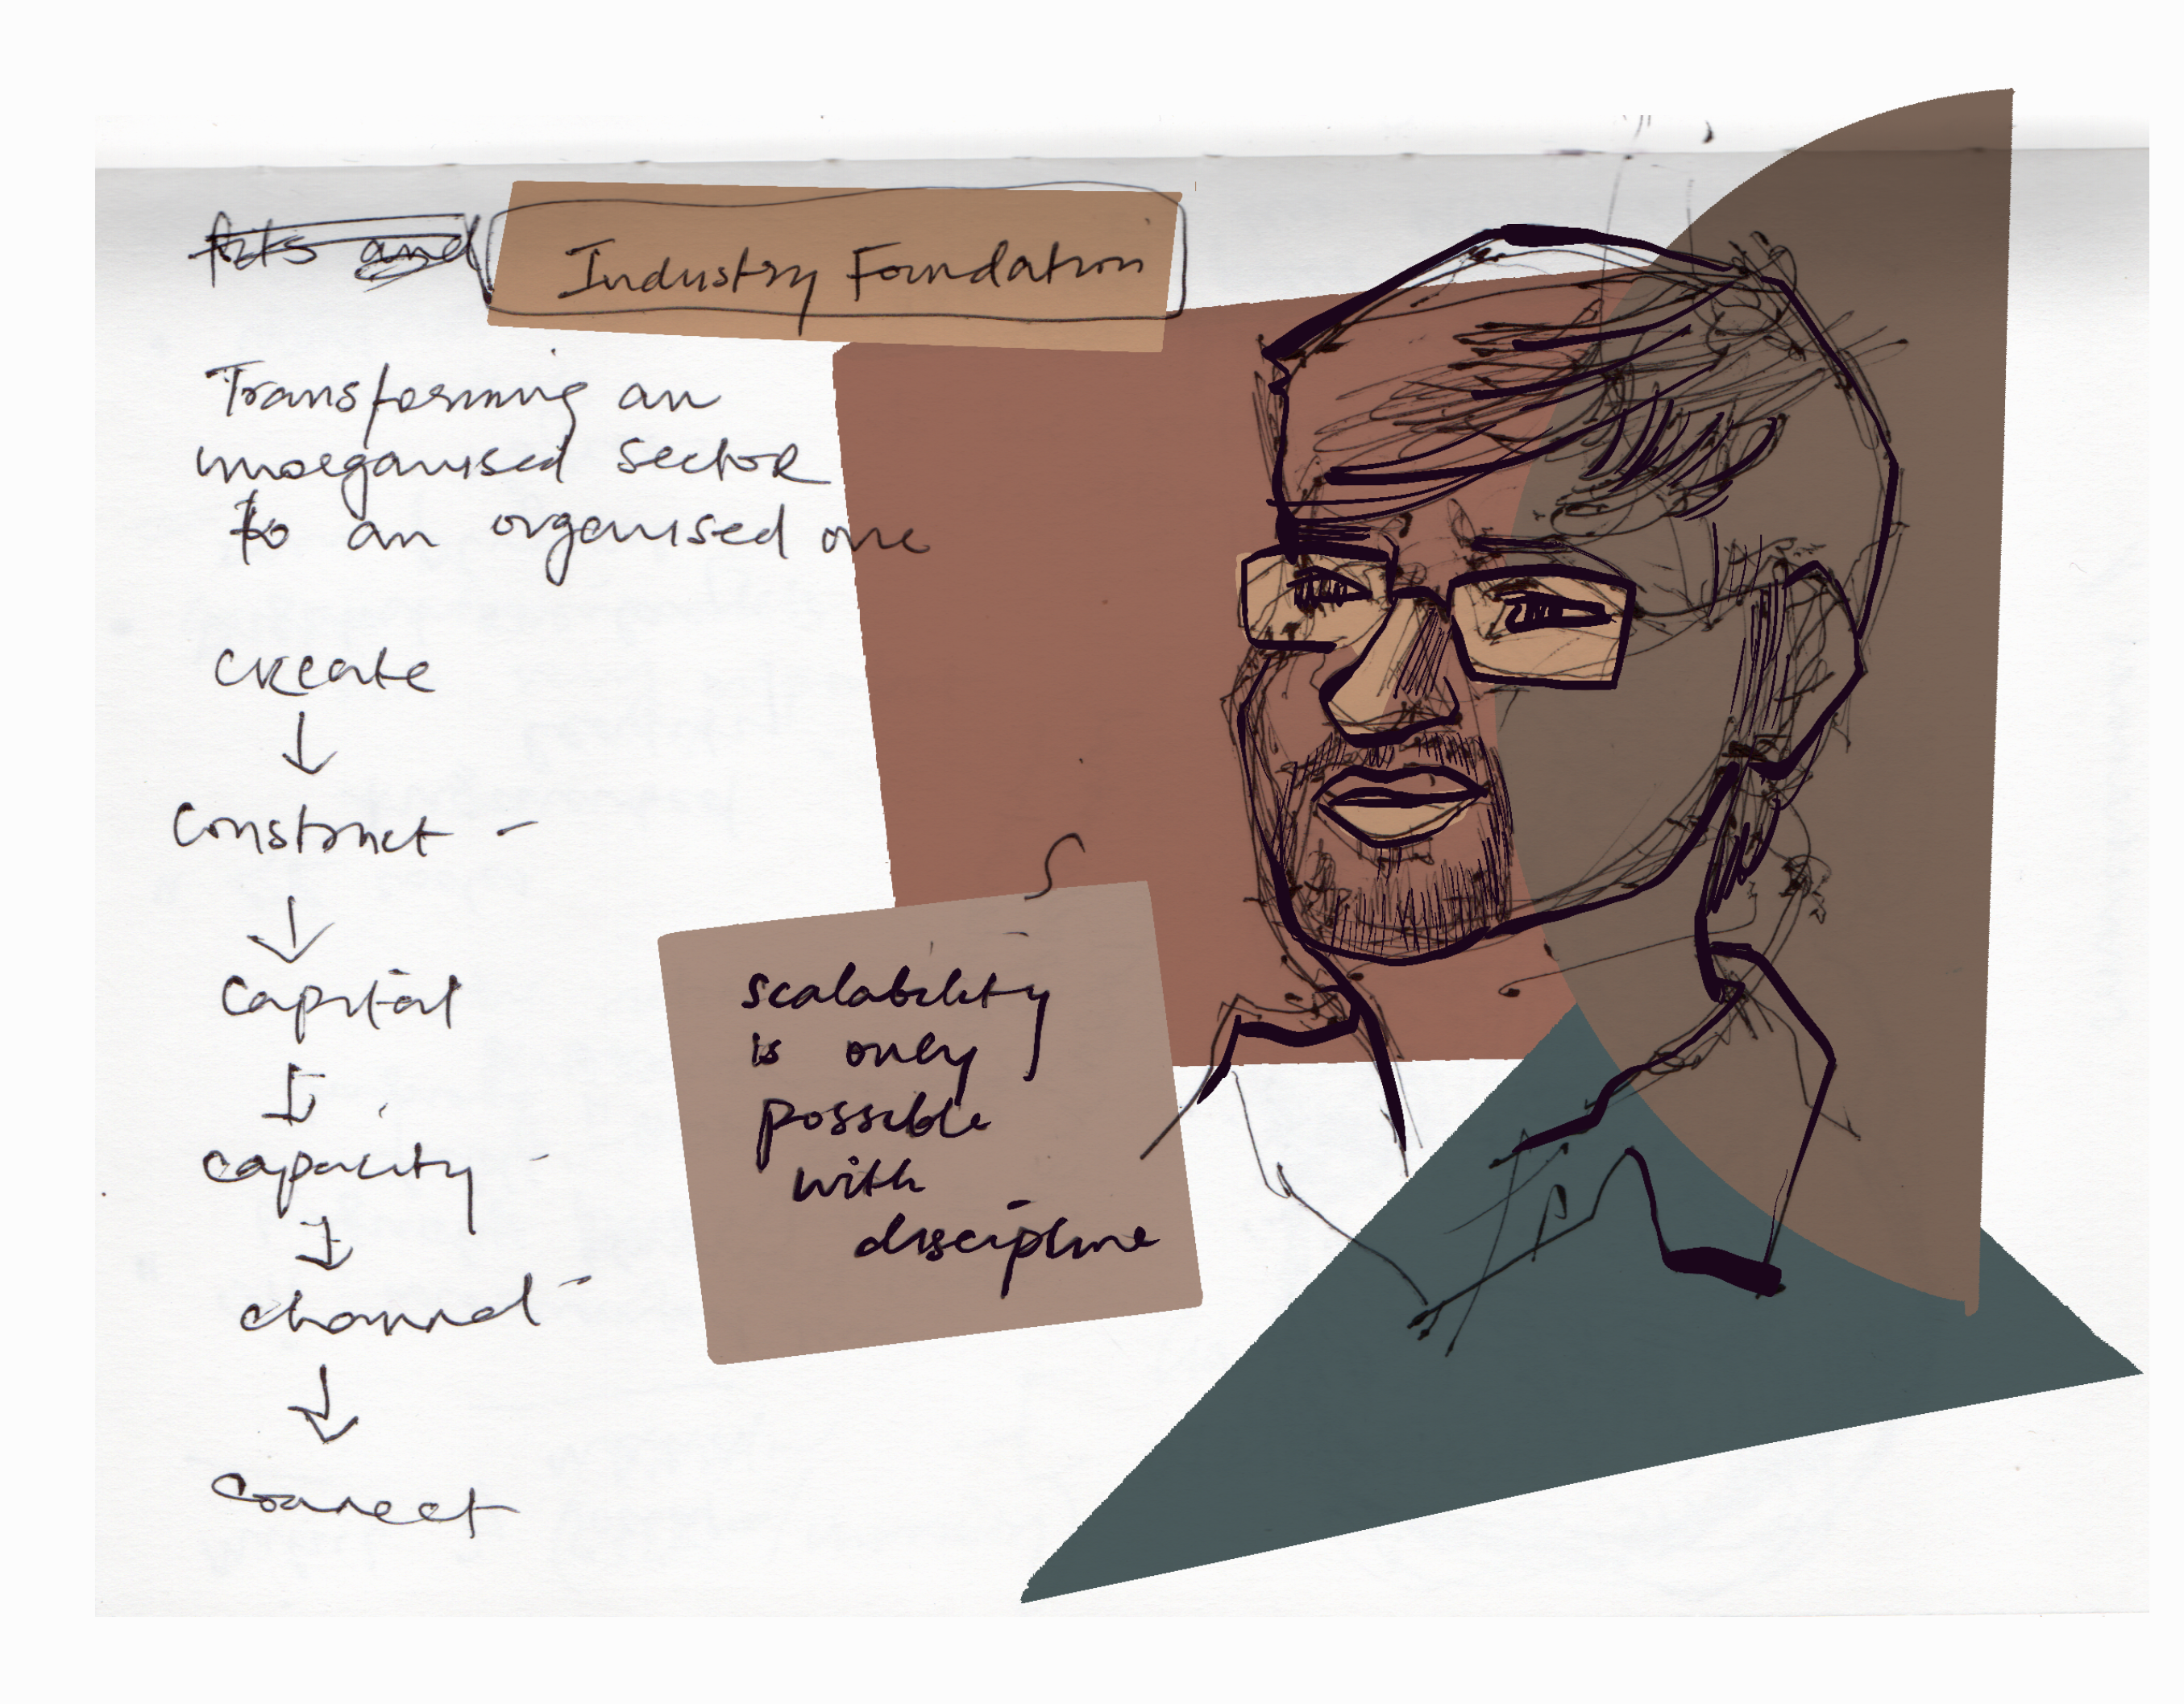 Arts and Industry Foundation
Transforming an
unorganised sector
to an organised one
create
↓
construct -
↓
capital
↓
capacity -
↓
channel -
↓
connect
S
scalability
is only
possible
with
discipline